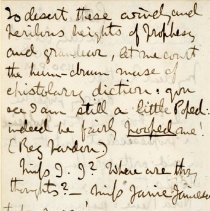 To desert these windy and
perilous heights of Prophesy
and grandeur, let me court
the hum-drum muse of
epistolary diction: you
see I am still a little Poped-
indeed he fairly hooped me!
(Beg Pardon)
Miss J. J? Where are thy
thoughts? – Miss Janie